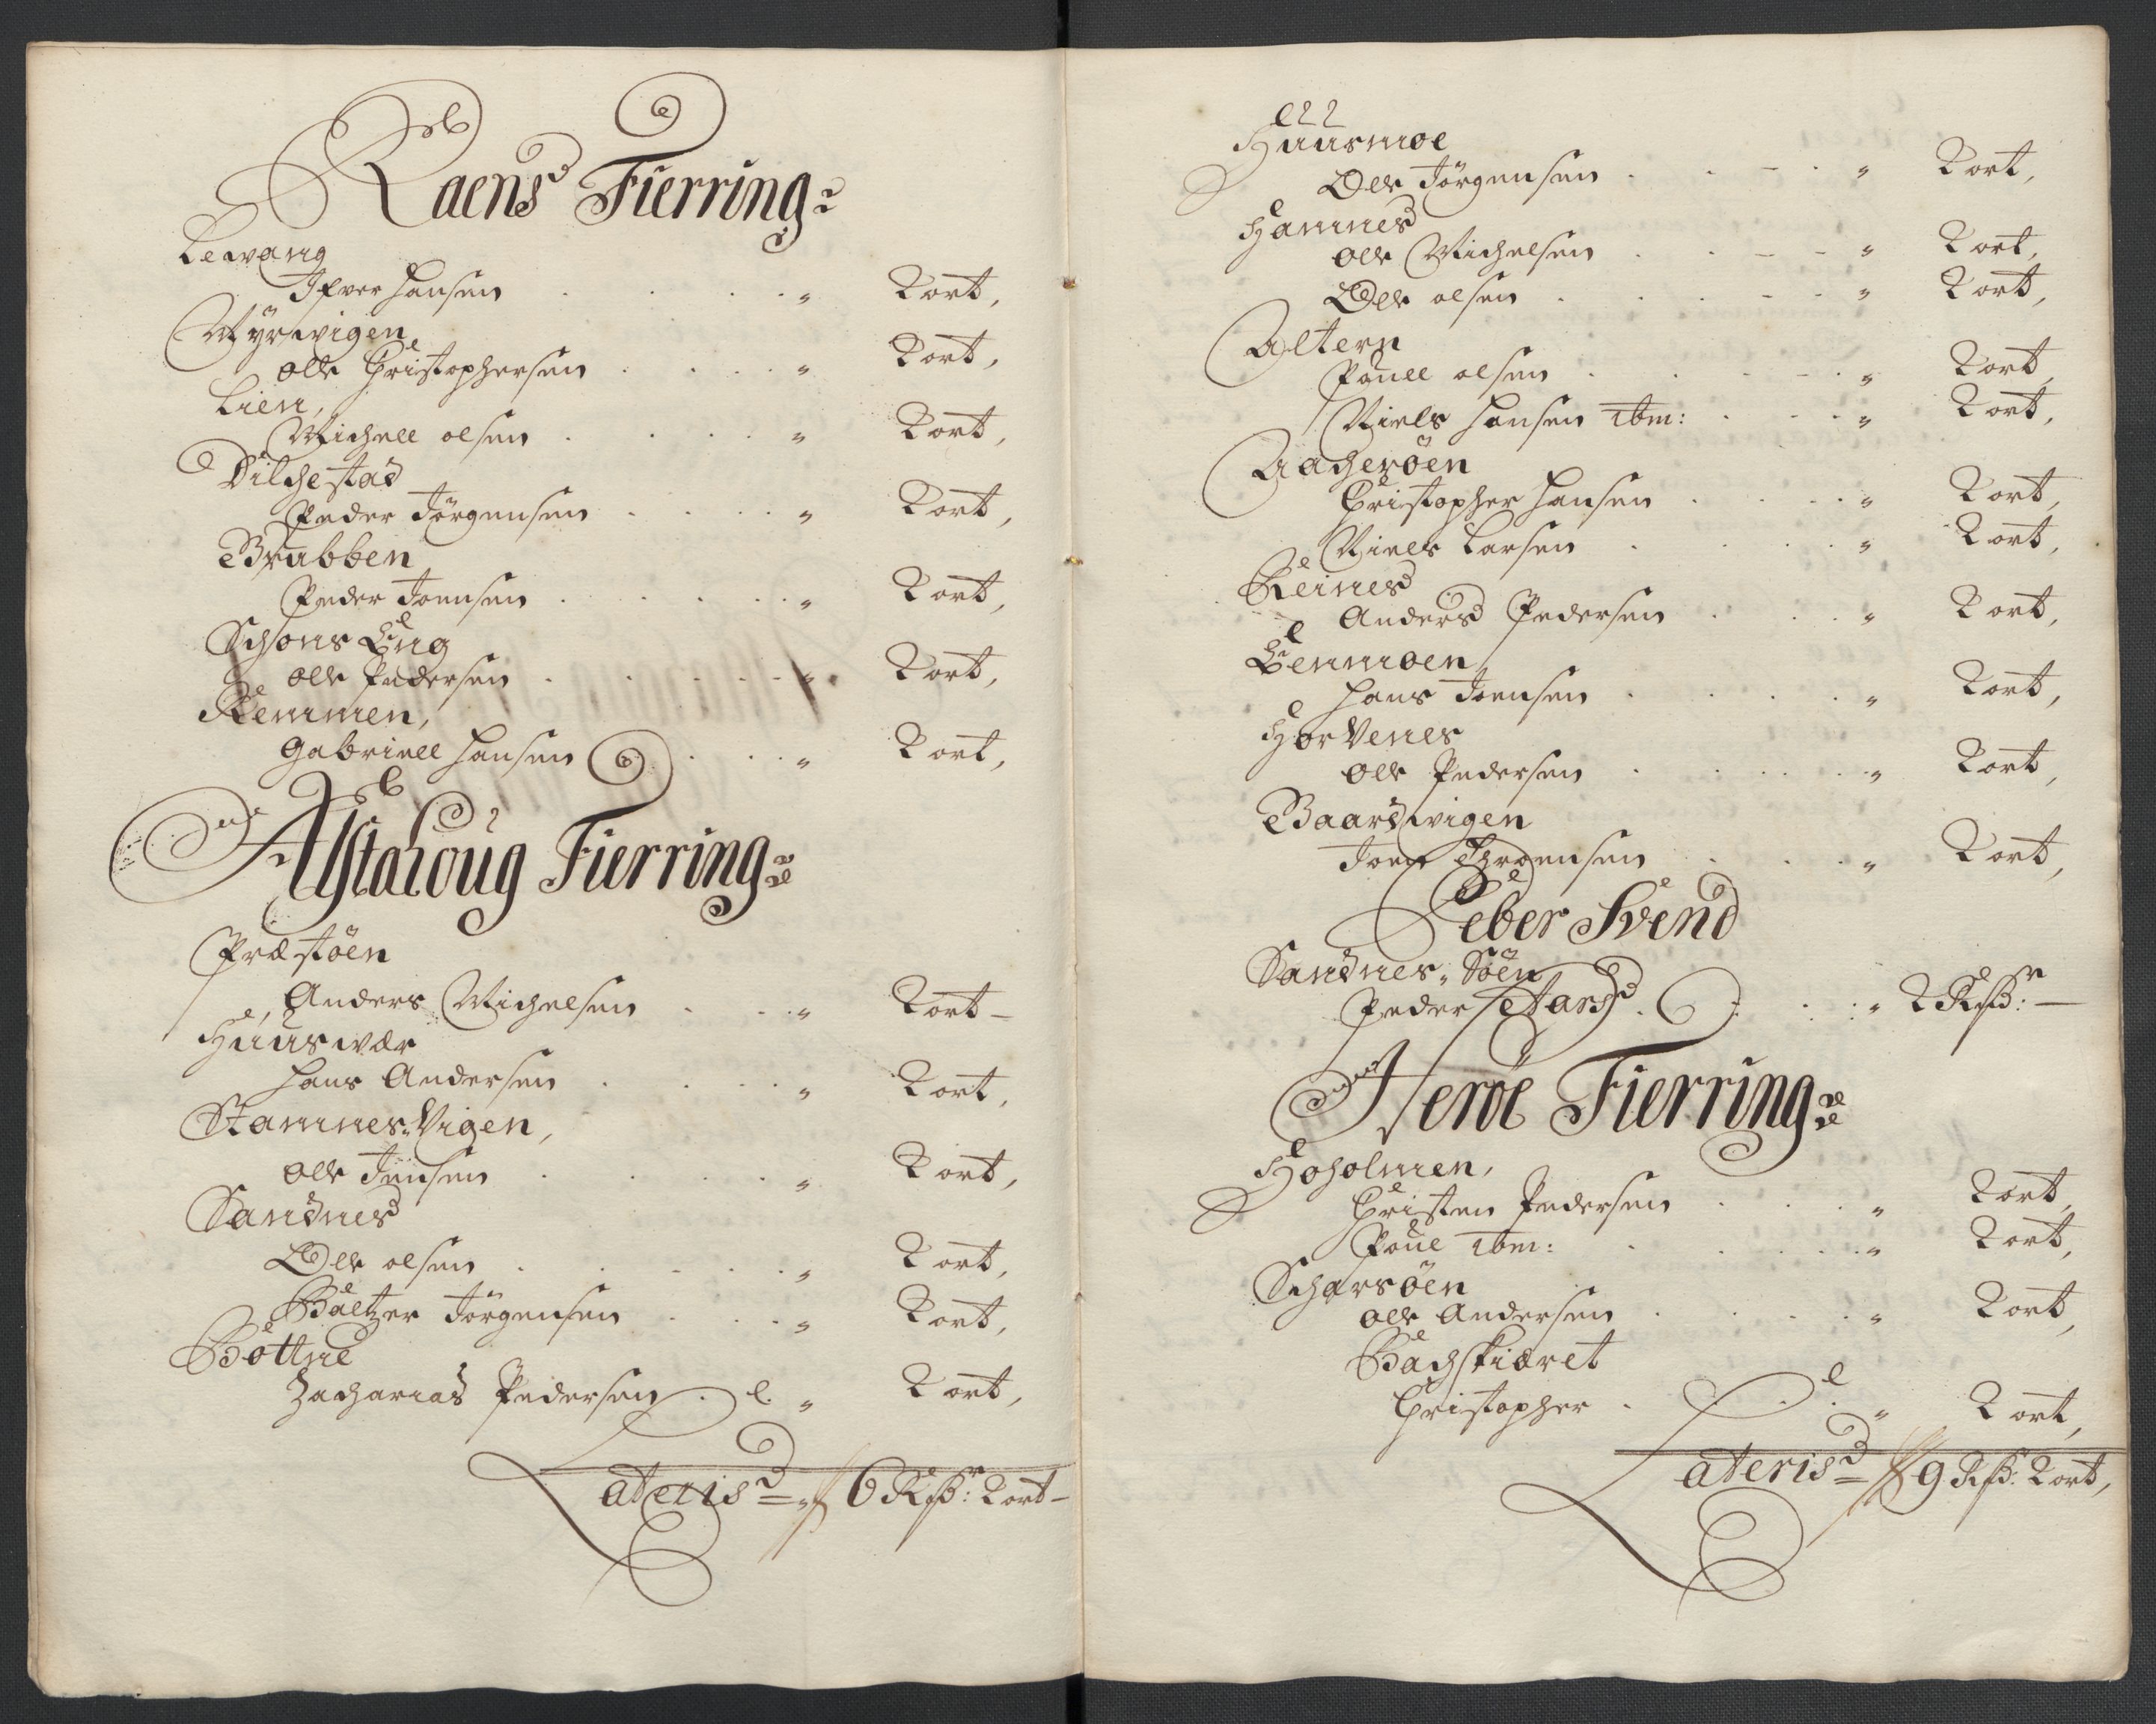 Raens Fierring
Lewang
Ifver Hansen . . . . „ 2 ort,
Myrwigen
Olle Christophersen . . . . „ 2 ort,
Lien,
Michell Olsen . . . . „ 2 ort,
Dilchestad
Peder Jörgensen . . . . „ 2 ort,
Brubben
Peder Joensen . . . . „ 2 ort,
Schons Eng
Olle Pedersen . . . . „ 2 ort,
Remmen,
Gabriell Hansen . . . „ 2 ort,
Alstahoug Fierring
Præstöen
Anders Michelsen . . . „ 2 ort –
Huuswær
Hans Andersen . . . . „ 2 ort,
Stamnes Vigen,
Olle Jensen . . . . „ 2 ort,
Sandnes
Olle Olsen . . . . „ 2 ort,
Baltzer Jörgensen . . . „ 2 ort,
Bottne
Zacharias Pedersen . . „ 2 ort,
Lateris = „ 6 Rdr: 2 ort –
Huusmoe
Olle Jörgensen . . – . „ 2 ort,
Hamnes
Olle Michelsen . . – – „ 2 ort,
Olle Olsen . . . – – „ 2 ort,
Altern
Pouell Olsen . . – . „ 2 ort,
Niels Hansen ibm: . . . „ 2 ort,
Aacheröen
Christopher Hansen . . . „ 2 ort,
Niels Larsen . . . . „ 2 ort,
Reines
Anders Pedersen . . . „ 2 ort,
Lemmoen
Hans Joensen . . . . „ 2 ort,
Horvenes
Olle Pedersen . . . . „ 2 ort,
Baardswigen
Joen Throensen . . . „ 2 ort,
Peber Svend
Sandnes„ Söen
Peder . . . „ 2 Rdr: –
Heröe Fierring
Hoholmen,
Christen Pedersen . . . „ 2 ort,
Poue ibm: . . . . „ 2 ort,
Scharsöen
Olle Andersen . . . „ 2 ort,
Bachskiæret
Christopher . . . . „ 2 ort,
Lateris = 9 Rdr: 2 ort,